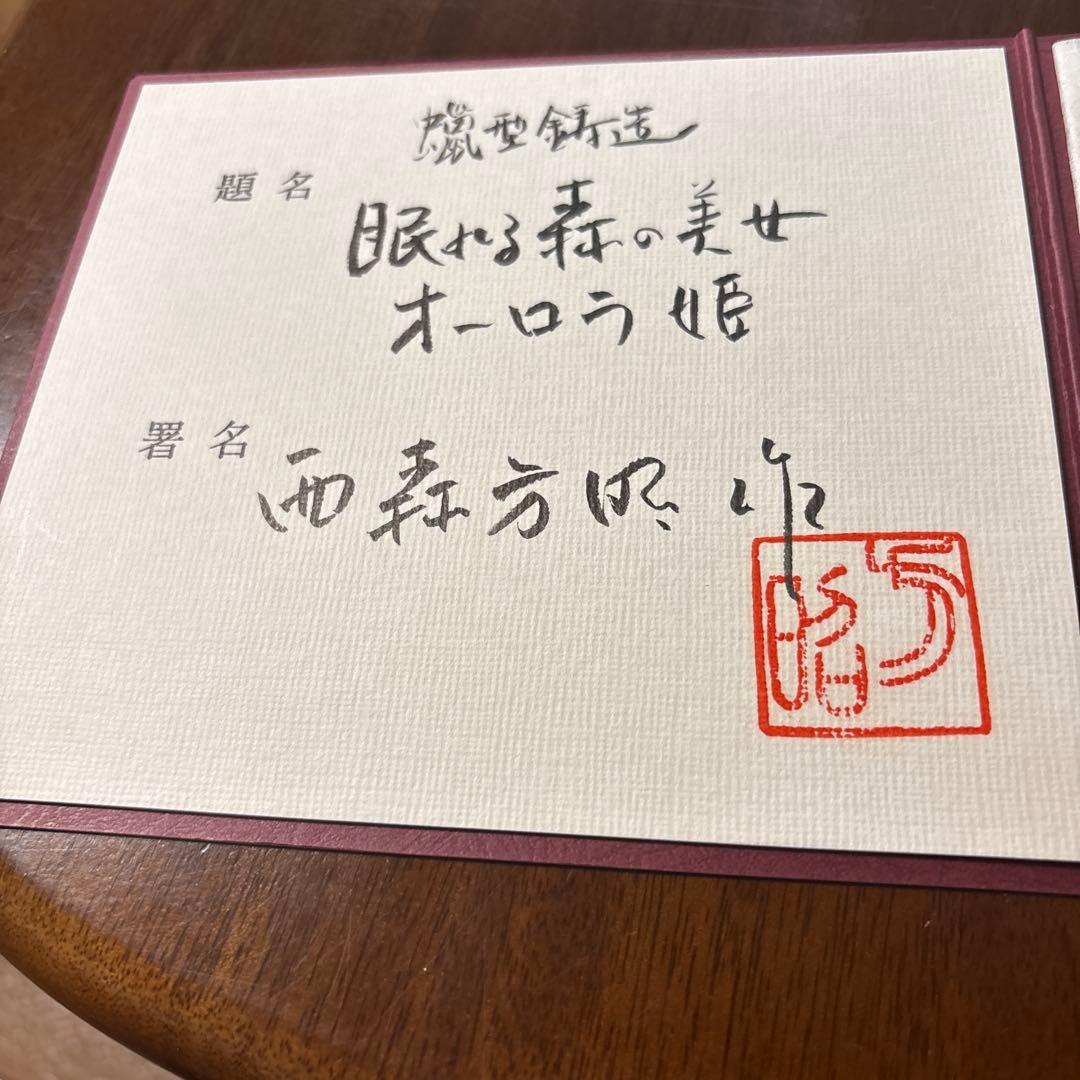 蠟型鋳造
題名
眠れる森の美女
オーロラ姫
署名 西森方昭 作
方昭